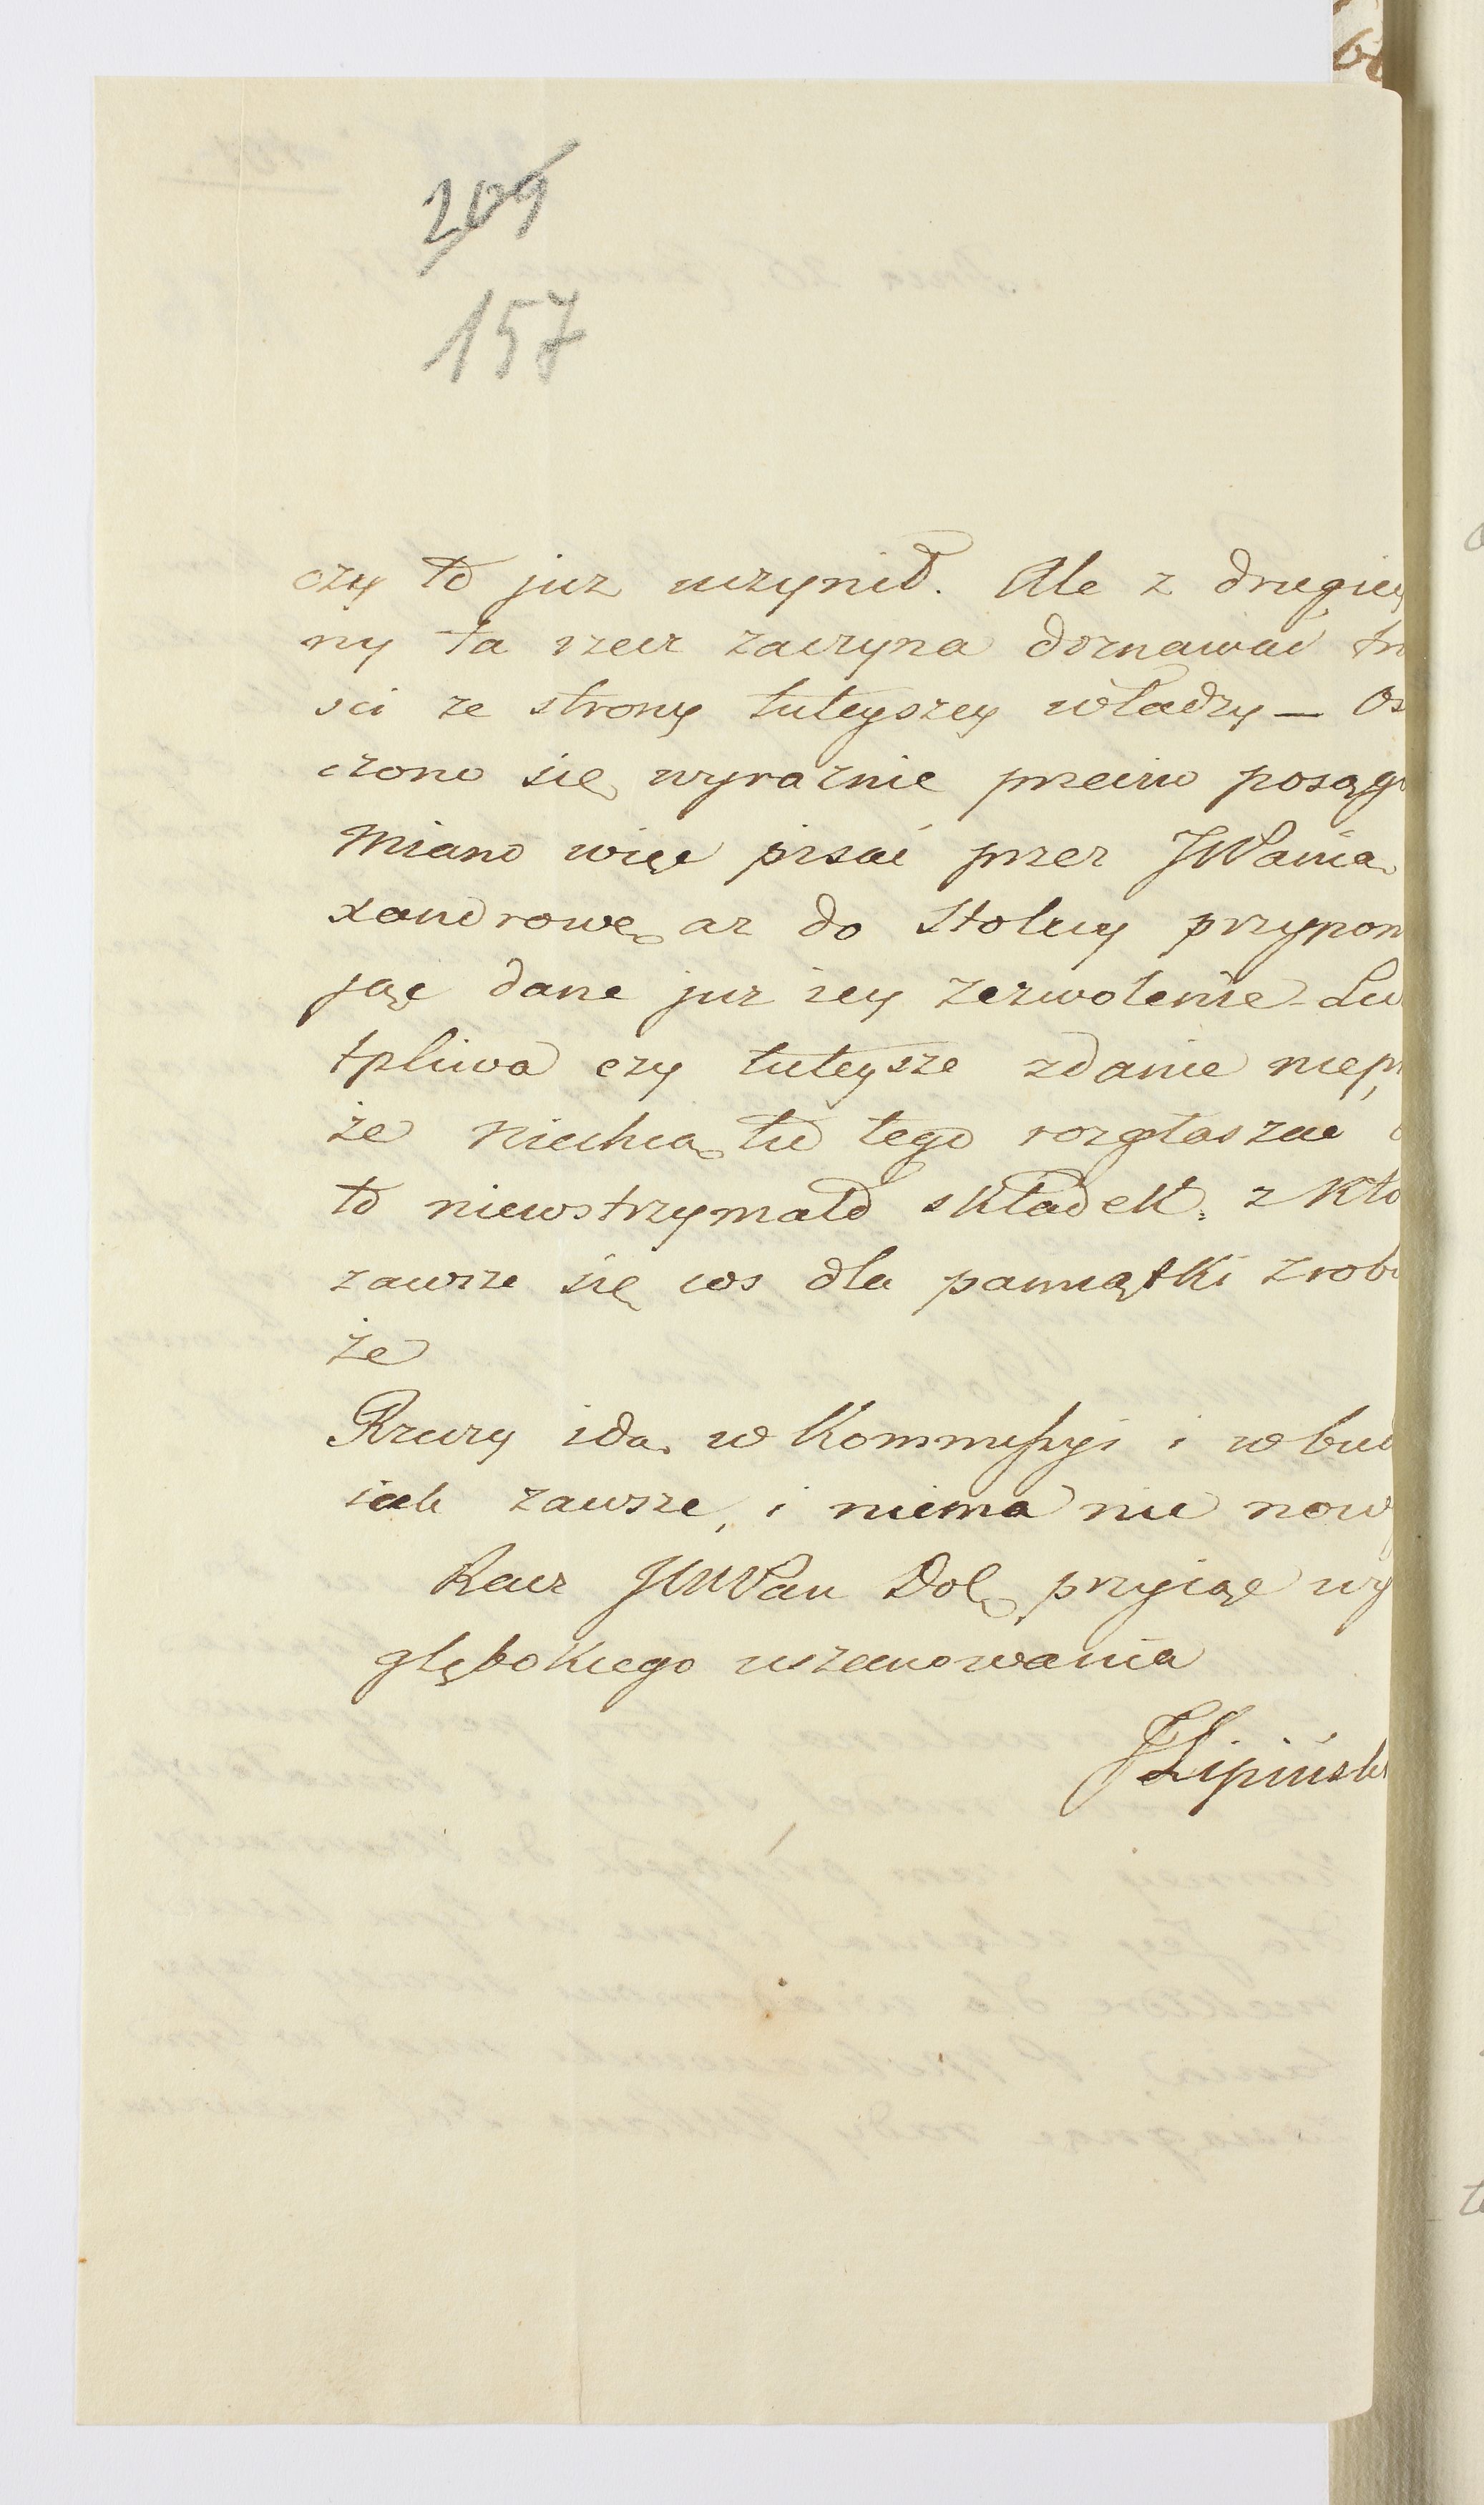 209
157
czy to juz uczynił. Ale z drugiey
ny ta rzecz zaczyna doznawać tr
sci ze strony tuteyszey władzy — Os
czono się wyraznie przeciw posąg
Miano więc pisać przez JWPania
xandrowę az do Stolicy przypom
jąc dane juz iey zezwolenie
tpliwa czy tuteysze zdanie niepr
że niechcą tu tego rozgłaszac
to niewstrzymało składek. z kto
zawsze się cos dla pamiątki zrobi
że
Rzeczy idą w Kommissyi i w bud
iak zawsze, i niema nic now
Racz JWWPan Dob. przyiąć wy
głębokiego uszanowania
JLipinsk